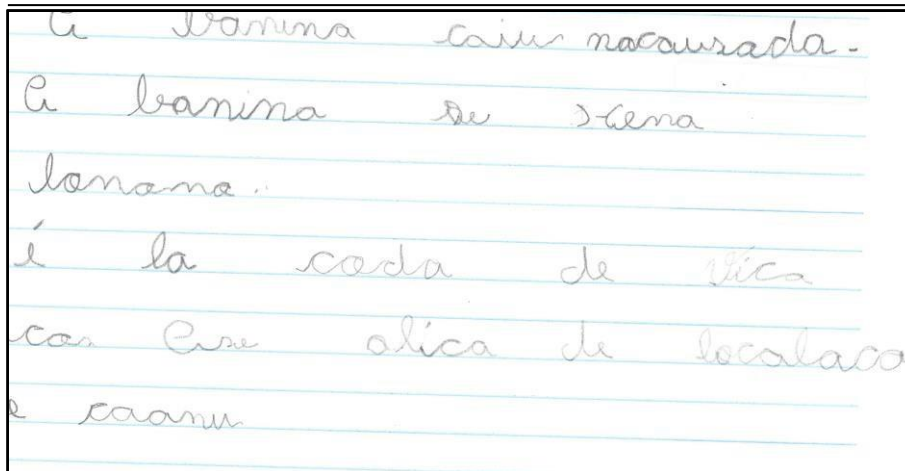 A banina caiu nacausada.
A banina se xema
lanama.
é la coda de vica
ca. olica de localaca
e caanu